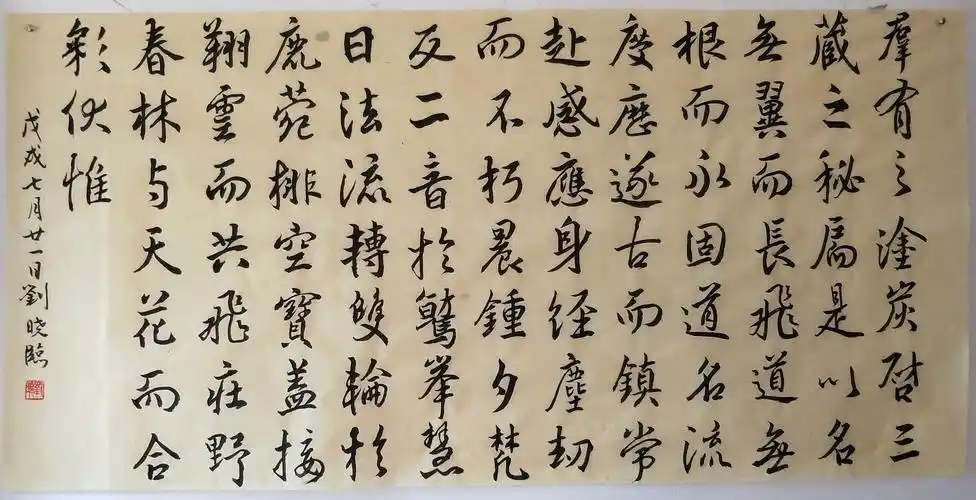 羣有之塗炭启三
藏之秘扃是以名
無翼而長飛道無
根而永固道名流
慶歷遂古而鎮常
赴感應身經塵劫
而不朽晨鍾夕梵
交二音於鷲峯慧
日法流轉雙輪於
鹿菀排空寶蓋接
翔雲而共飛莊野
春林與天花而合
彩伏惟
戊戌七月廿一日劉曉臨